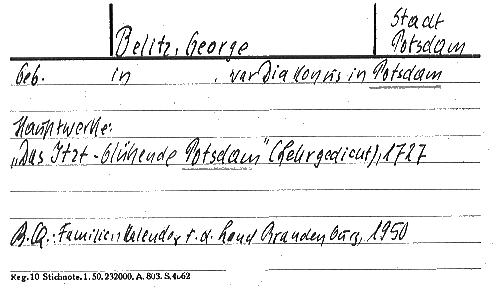 Stadt
Belitz, George Potsdam
Geb. in , war Diakonus in Potsdam
Hauptwerke:
„Das Itzt-blühende Potsdam" (Lehrgedicht), 1727
B.Qu.: Familienkalender f. d. Land Brandenburg, 1950
Reg. 10 Stichnote. 1. 50. 232000. A. 803. S. 4062